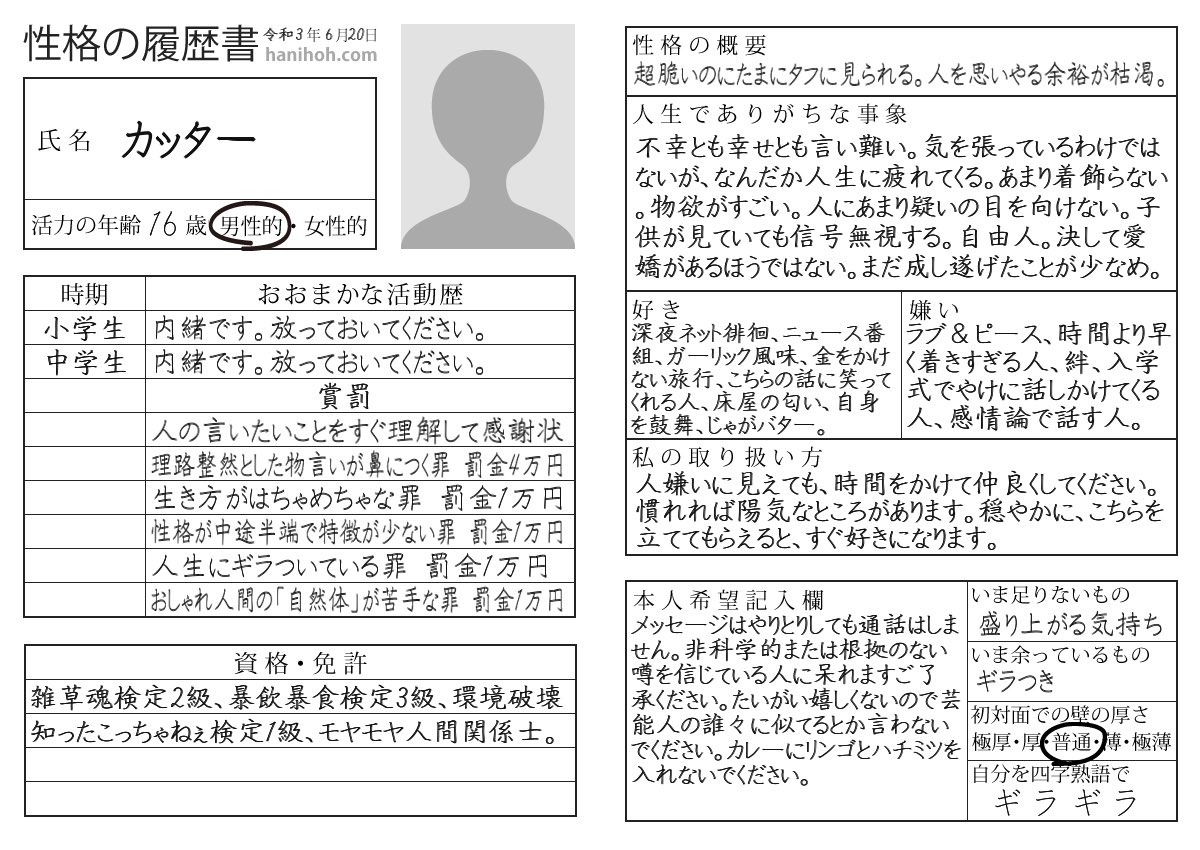 性格の履歴書 令和3年6月20日
hanihoh.com
氏名 カッター
活力の年齢 16 歳 男性的・女性的
時期 おおまかな活動歴
小学生 内緒です。放っておいてください。
中学生 内緒です。放っておいてください。
賞罰
人の言いたいことをすぐ理解して感謝状
理路整然とした物言いが鼻につく罪 罰金4万円
生き方がはちゃめちゃな罪 罰金1万円
性格が中途半端で特徴が少ない罪 罰金1万円
人生にギラついている罪 罰金1万円
おしゃれ人間の「自然体」が苦手な罪 罰金1万円
資格・免許
雑草魂検定2級、暴飲暴食検定3級、環境破壊
知ったこっちゃねぇ検定1級、モヤモヤ人間関係士。
性格の概要
超脆いのにたまにタフに見られる。人を思いやる余裕が枯渇。
人生でありがちな事象
不幸とも幸せとも言い難い。気を張っているわけでは
ないが、なんだか人生に疲れてくる。あまり着飾らない
。物欲がすごい。人にあまり疑いの目を向けない。子
供が見ていても信号無視する。自由人。決して愛
嬌があるほうではない。まだ成し遂げたことが少なめ。
好き
深夜ネット徘徊、ニュース番
組、ガーリック風味、金をかけ
ない旅行、こちらの話に笑って
くれる人、床屋の匂い、自身
を鼓舞、じゃがバター。
嫌い
ラブ＆ピース、時間より早
く着きすぎる人、絆、入学
式でやけに話しかけてくる
人、感情論で話す人。
私の取り扱い方
人嫌いに見えても、時間をかけて仲良くしてください。
慣れれば陽気なところがあります。穏やかに、こちらを
立ててもらえると、すぐ好きになります。
本人希望記入欄
メッセージはやりとりしても通話はしま
せん。非科学的または根拠のない
噂を信じている人に呆れますご了
承ください。たいがい嬉しくないので芸
能人の誰々に似てるとか言わない
でください。カレーにリンゴとハチミツを
入れないでください。
いま足りないもの
盛り上がる気持ち
いま余っているもの
ギラつき
初対面での壁の厚さ
極厚・厚・普通・薄・極薄
自分を四字熟語で
ギラギラ